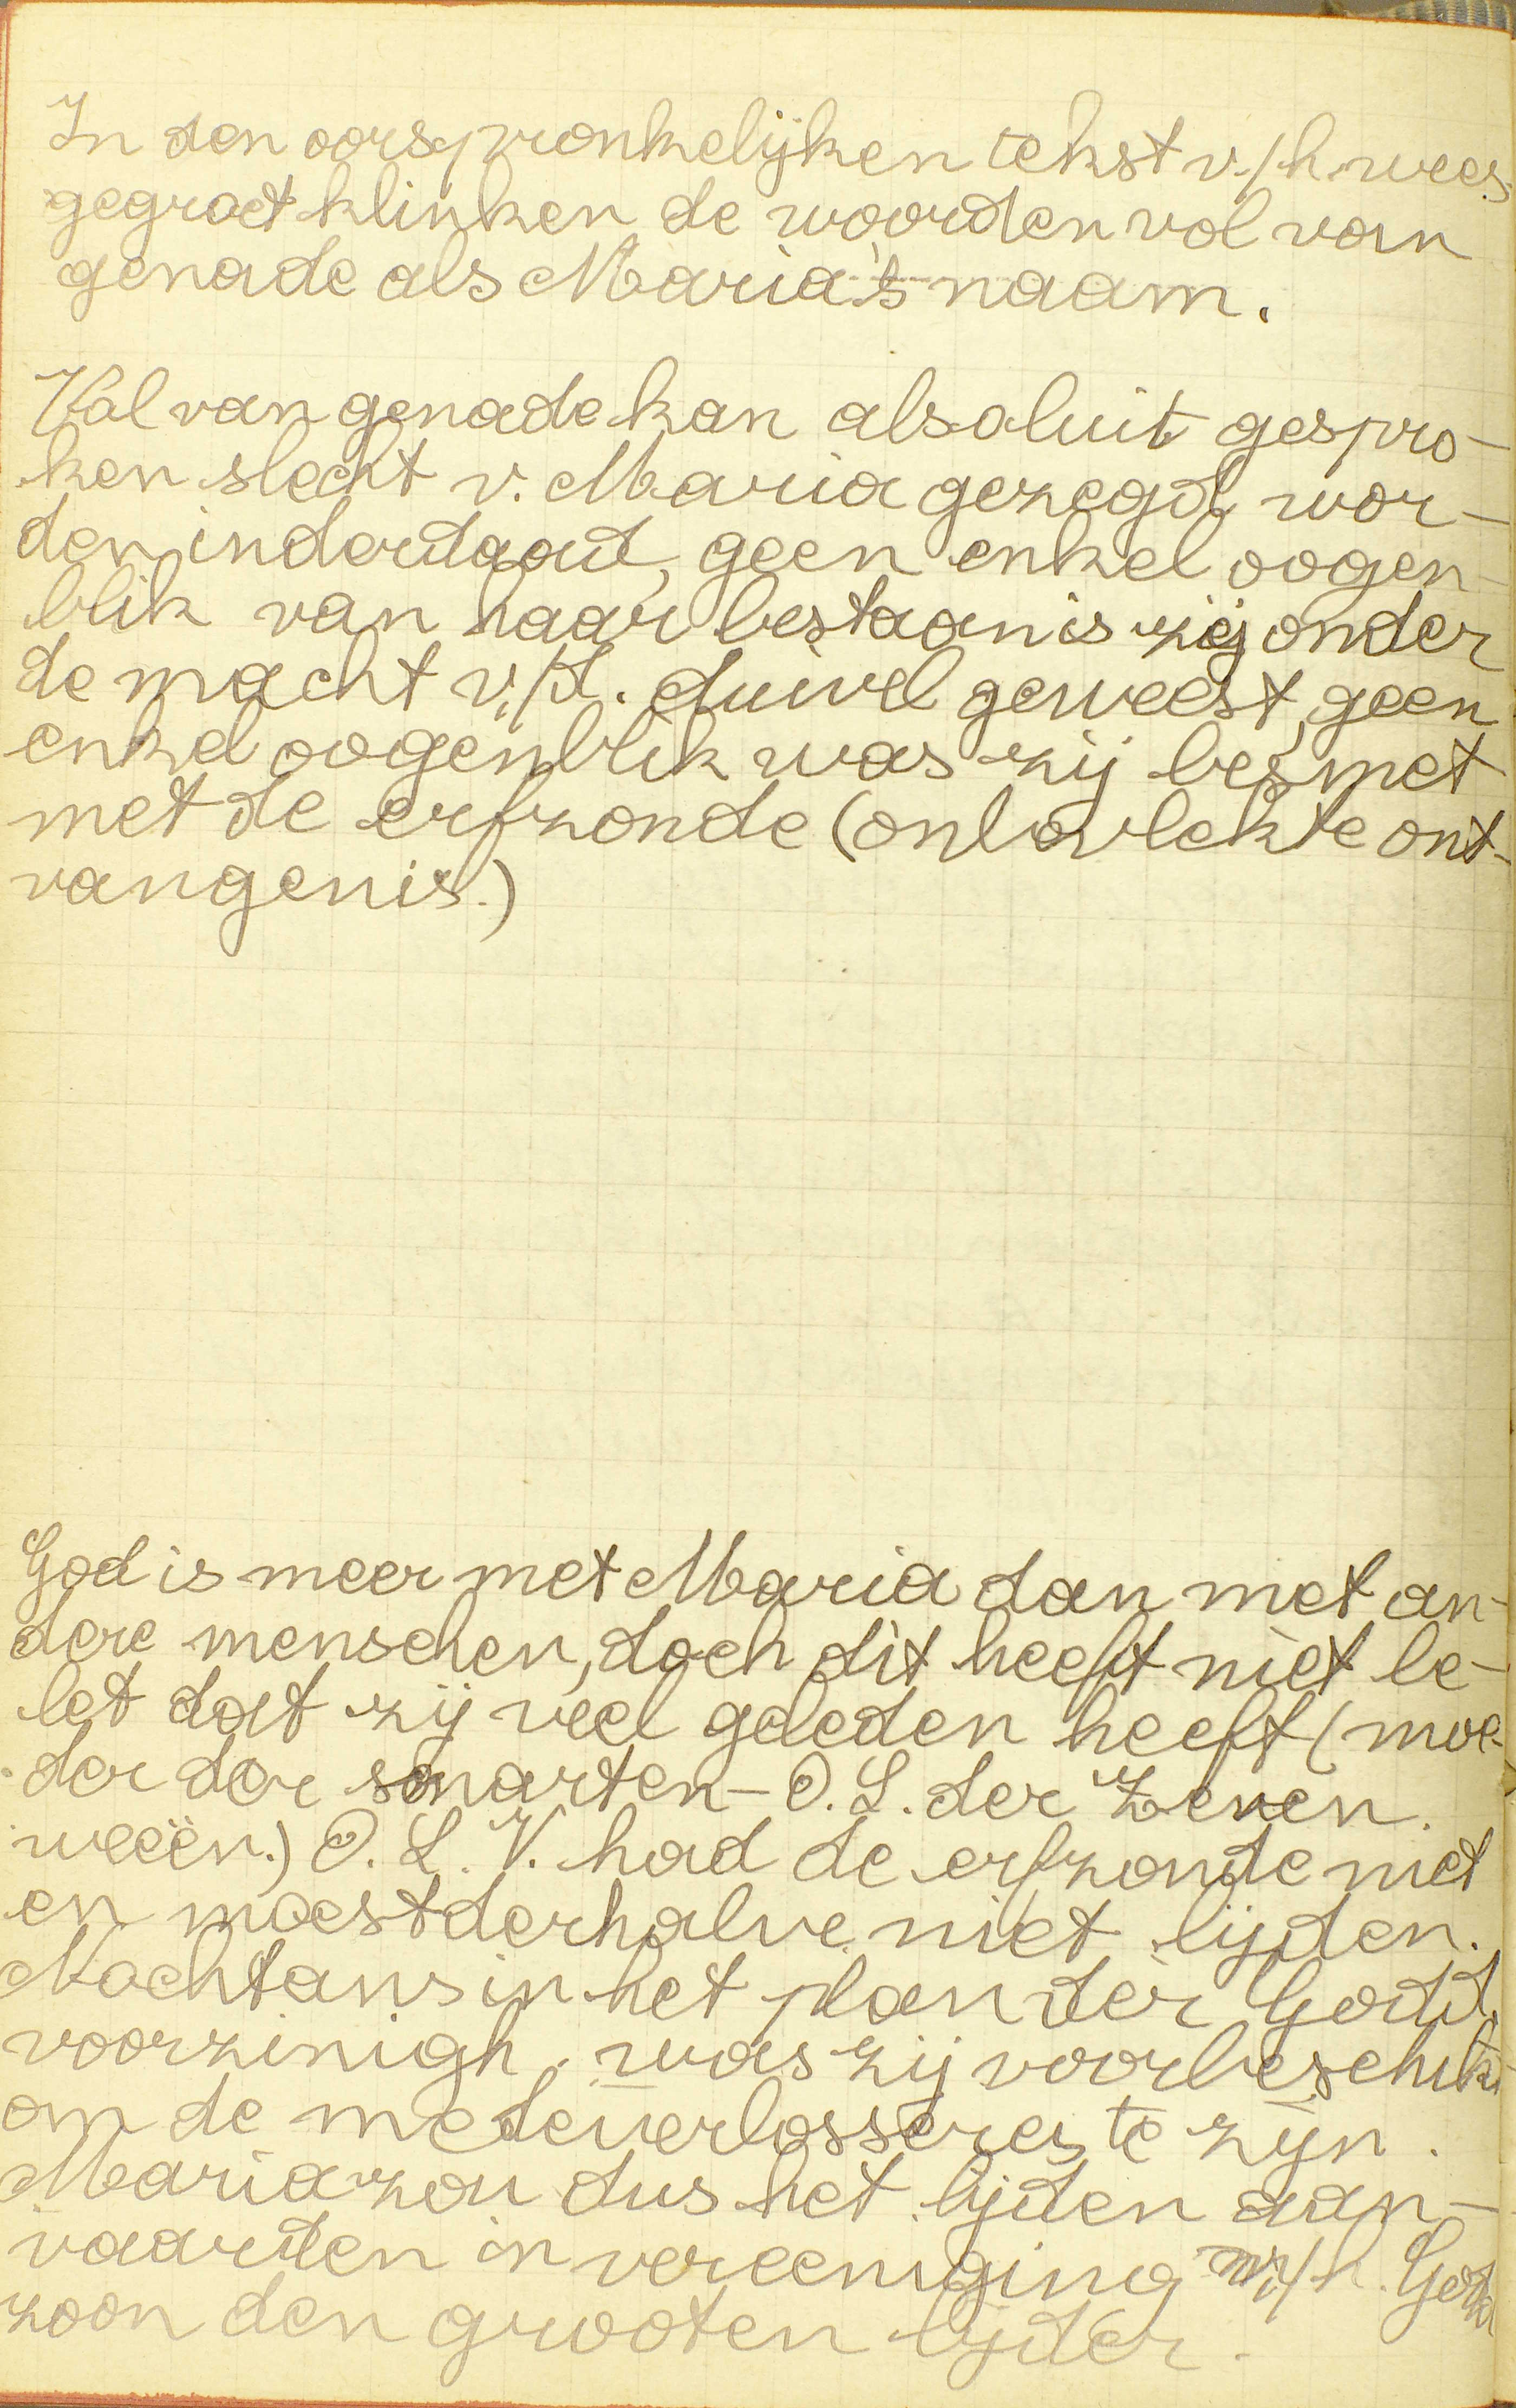 In den oorspronkelijken tekst v./h. wees
gegroet klinken de woorden vol van
genade als Maria's naam.
Vol van genade kan absoluut gespro-
ken slecht v. Maria gezegd wor-
den, inderdaad, geen enkel oogen-
blik van haar bestaan is zij onder
de macht v./d. duivel geweest, geen
enkel oogenblik was zij besmet
met de erfzonde (onbevlekte ont-
vangenis.)
God is meer met Maria dan met an-
dere menschen, doch dit heeft niet be-
let dat zij veel geleden heeft (moe-
der der smarten - O. L. der Zeven
weeën.) O. L. V. had de erfzonde niet
en moest derhalve niet lijden.
Nochtans in het plan der Godd.
voorzinigh. was zij voorbeschikt
om de medeverlosseres te zijn.
Maria zou dus het lijden aan-
vaarden in vereeniging m/h. Gods
zoon den grooten lijder.